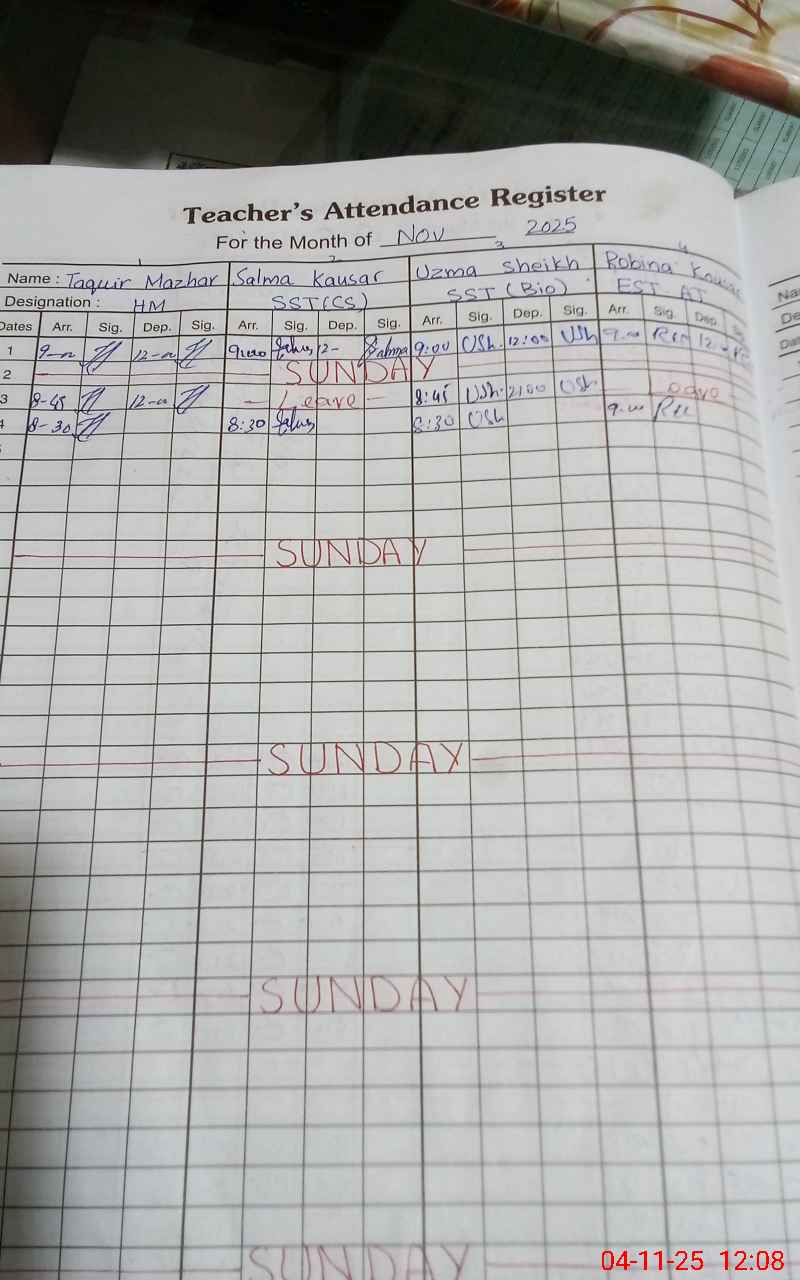 Teacher's Attendance Register
For the Month of Nov 2025
1 2 3 4
Name : Taquir Mazhar Salma Kausar Uzma Sheikh Robina Kausar
Designation : HM SST(CS) SST (Bio) EST AT
Dates Arr. Sig. Dep. Sig. Arr. Sig. Dep. Sig. Arr. Sig. Dep. Sig. Arr. Sig. Dep.
1 9-00 12-00 9:00 12- Salma 9:00 USh. 12:00 USh 9-00 12-
2 SUNDAY
3 8-45 12-00 - Leave - 8:45 USh. 2:00 USh.
4 8-30 8:30 8:30 USh 9-00
SUNDAY
SUNDAY
SUNDAY
SUNDAY
04-11-25 12:08